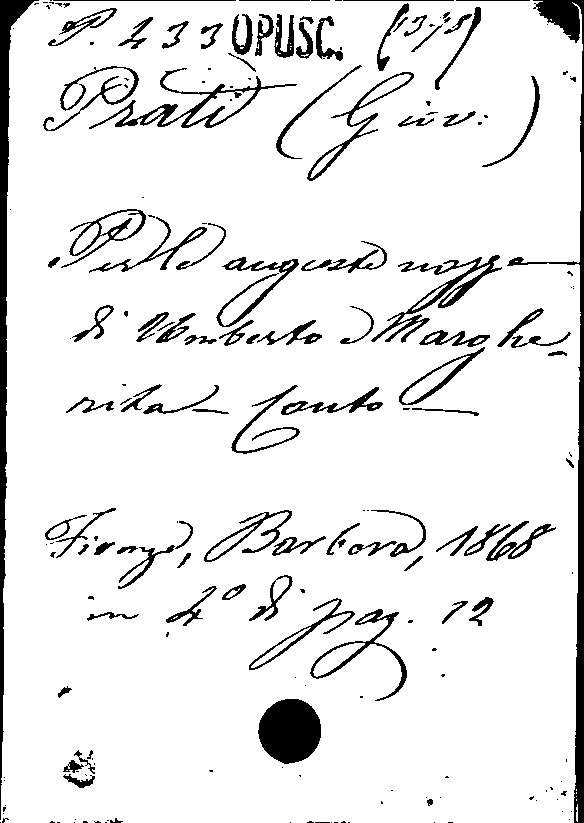 P. 433 OPUSC. (1378)
Prati (Giov:)
Per le auguste nozze
di Umberto e Marghe-
rita - Canto -
Firenze, Barbera, 1868
in 4º di pag. 12